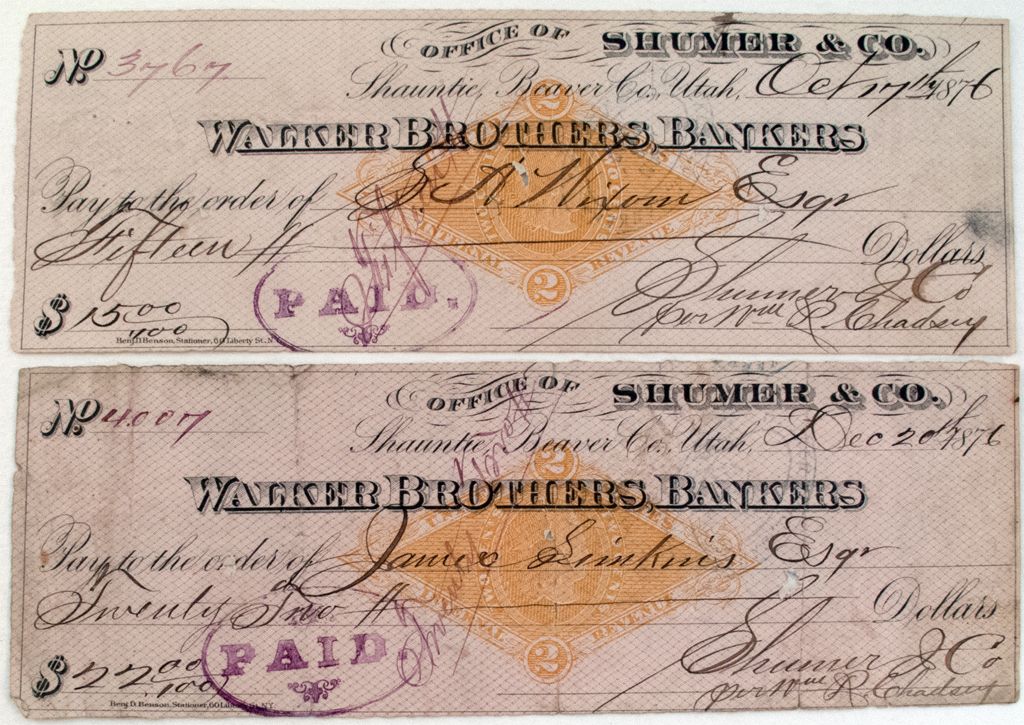 OFFICE OF SHUMER & CO.
No 3767
Shauntie, Beaver Co. Utah, Oct 17th 1876
WALKER BROTHERS, BANKERS
Pay to the order of S. A. Wixom Esqr
Fifteen Dollars
INTERNAL REVENUE
2
2
PAID.
Shumer & Co
$ 15 00/100
per Wm R. Chadsey
Benj. D. Benson, Stationer, 60 Liberty St. N.Y.
OFFICE OF SHUMER & CO.
No 4007
Shauntie, Beaver Co. Utah, Dec 20th 1876
WALKER BROTHERS, BANKERS
Pay to the order of James Simkins Esqr
Twenty Two Dollars
INTERNAL REVENUE
2
2
PAID.
Shumer & Co
$ 22 00/100
per Wm R. Chadsey
Benj. D. Benson, Stationer, 60 Liberty St. N.Y.